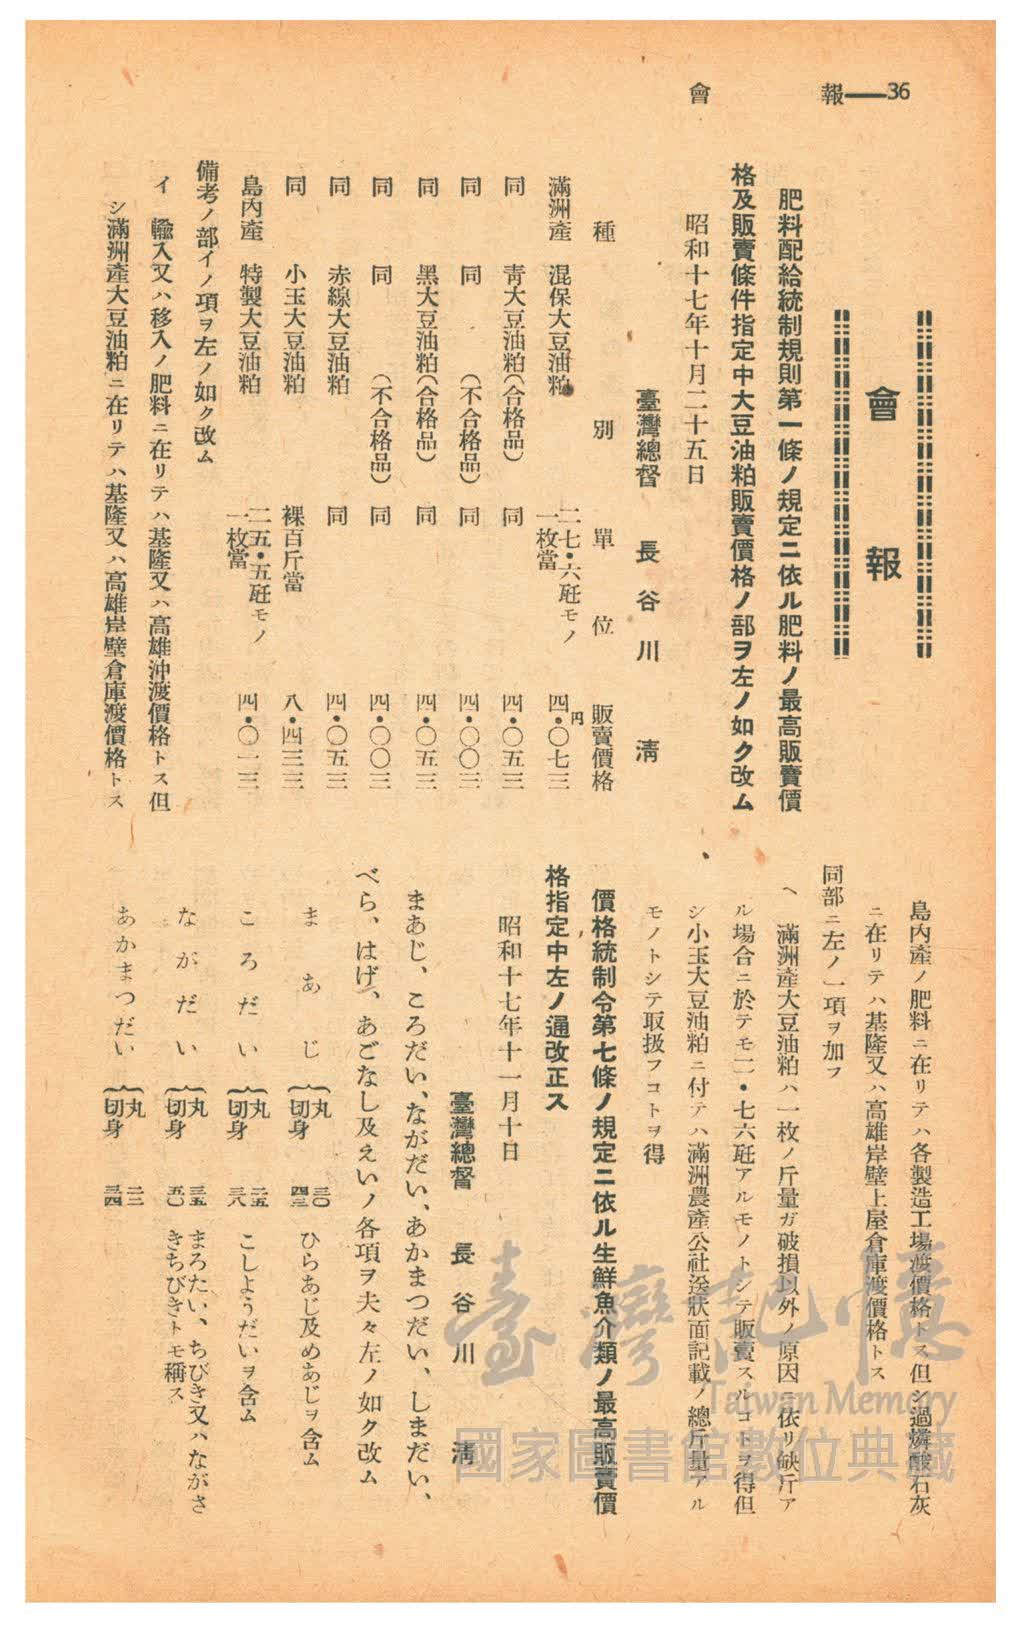 36――報　會
會報
肥料配給統制規則第一條ノ規定ニ依ル肥料ノ最高販賣價
格及販賣條件指定中大豆油粕販賣價格ノ部ヲ左ノ如ク改ム
昭和十七年十月二十五日
臺灣總督　長谷川　淸
種別　單位　販賣價格
滿洲產　混保大豆油粕　二七・六瓩モノ一枚當　四・〇七三円
同　靑大豆油粕(合格品)　同　四・〇五三
同　同　(不合格品)　同　四・〇〇三
同　黑大豆油粕(合格品)　同　四・〇五三
同　同　(不合格品)　同　四・〇〇三
同　赤線大豆油粕　同　四・〇五三
同　小玉大豆油粕　裸百斤當　八・四三三
島內產　特製大豆油粕　二五・五瓩モノ一枚當　四・〇一三
備考ノ部イノ項ヲ左ノ如ク改ム
イ　輸入又ハ移入ノ肥料ニ在リテハ基隆又ハ高雄沖渡價格トス但
シ滿洲產大豆油粕ニ在リテハ基隆又ハ高雄岸壁倉庫渡價格トス
島內產ノ肥料ニ在リテハ各製造工場渡價格トス但シ過燐酸石灰
ニ在リテハ基隆又ハ高雄岸壁上屋倉庫渡價格トス
同部ニ左ノ一項ヲ加フ
ヘ　滿洲產大豆油粕ハ一枚ノ斤量ガ破損以外ノ原因ニ依リ缺斤ア
ル場合ニ於テモ二・七六瓩アルモノトシテ販賣スルコトヲ得但
シ小玉大豆油粕ニ付テハ滿洲農產公社送狀面記載ノ總斤量アル
モノトシテ取扱フコトヲ得
價格統制令第七條ノ規定ニ依ル生鮮魚介類ノ最高販賣價
格指定中左ノ通改正ス
昭和十七年十一月十日
臺灣總督　長谷川　淸
まあじ、ころだい、ながだい、あかまつだい、しまだい、
べら、はげ、あごなし及えいノ各項ヲ夫々左ノ如ク改ム
まあじ　{丸　切身　三〇　四三　ひらあじ及めあじヲ含ム
ころだい　{丸　切身　二五　三八　こしようだいヲ含ム
ながだい　{丸　切身　三五　五〇　まろたい、ちびき又ハながさきちびきトモ稱ス
あかまつだい　{丸　切身　二三　三四
臺灣記憶
Taiwan Memory
國家圖書館數位典藏